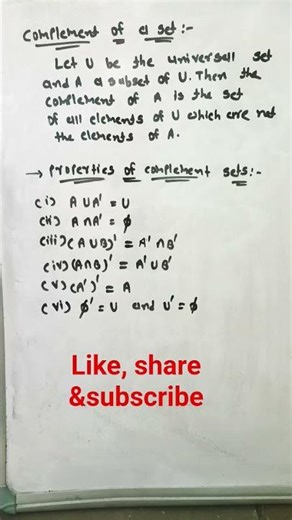 Complement of a set :-
Let U be the universall set
and A a subset of U. Then the
complement of A is the set
of all elements of U which are not
the elements of A.
→ Properties of complement sets:-
(i) A ∪ A' = U
(ii) A ∩ A' = ϕ
(iii) (A ∪ B)' = A' ∩ B'
(iv) (A ∩ B)' = A' ∪ B'
(v) (A')' = A
(vi) ϕ' = U and U' = ϕ
Like, share
&subscribe